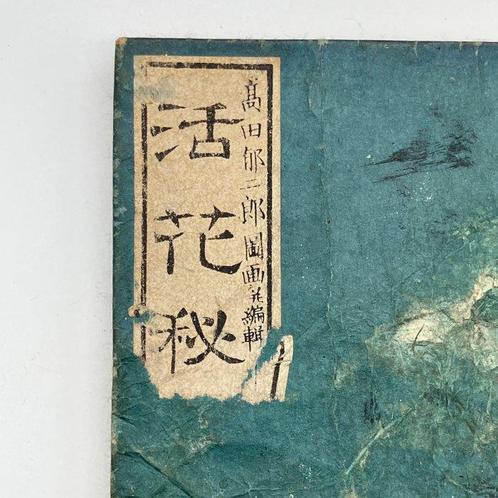 高田郁二郎圖画并編輯
活花秘